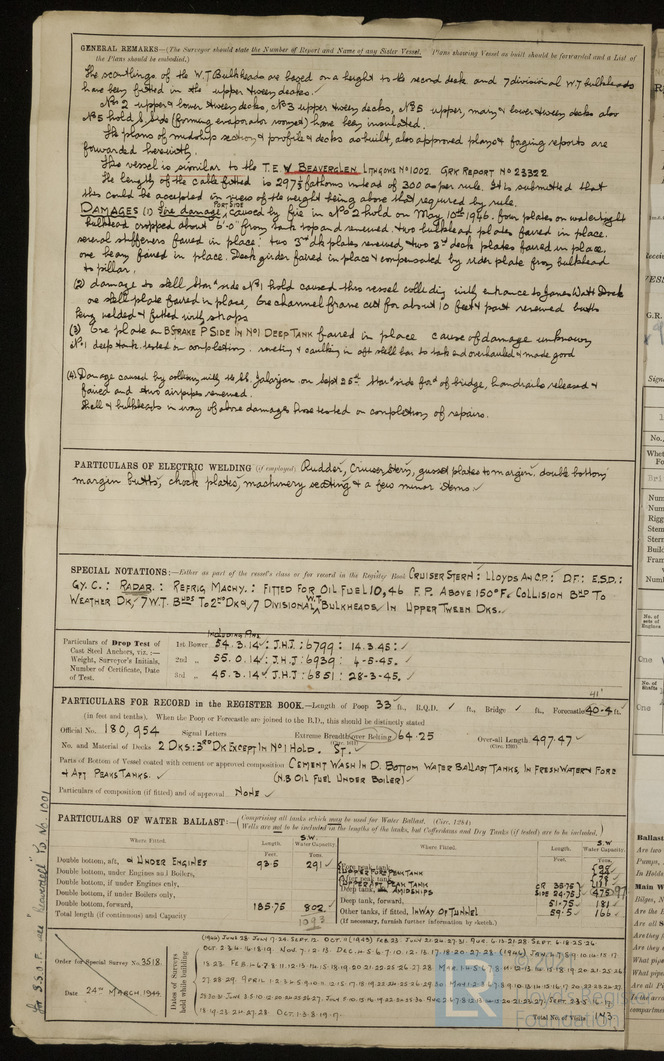 GENERAL REMARKS—(The Surveyor should state the Number of Report and Name of any Sister Vessel. Plans showing Vessel as built should be forwarded and a List of
the Plans should be embodied.)
The scantlings of the W.T. Bulkheads are based on a height to the second deck and 7 divisional W.T. bulkheads
have been fitted in the upper tween decks.
No 2 upper & lower tween decks, No 3 upper tween decks, No 5 upper, main & lower tween decks also
No 5 hold & sides (forming evaporator rooms) have been insulated.
The plans of midship section, profile & decks as built, also approved plans & forging reports are
forwarded herewith.
This vessel is similar to the T.E.V BEAVERGLEN LITHGOWS No 1002. GRK REPORT No 23322
The length of the cable fitted is 297½ fathoms instead of 300 as per rule. It is submitted that
this could be accepted in view of the weight being above that required by rule.
DAMAGES (1) Fire damage, PORT SIDE caused by fire in No 2 hold on May 10th 1946. four plates on watertight
bulkhead cropped about 6'-0" from tank top and renewed. two bulkhead plates faired in place.
several stiffeners faired in place: two 3rd dk plates renewed, two 3rd deck plates faired in place.
one beam faired in place. Deck girder faired in place & compensated by under plate from bulkhead
to pillar.
(2) damage to shell Star side No 1 hold caused this vessel colliding with entrance to James Watt Dock
one shell plate faired in place, One channel frame cut for about 10 feet & part renewed butts
being welded & fitted with straps
(3) One plate on B STRAKE P SIDE IN No 1 DEEP TANK faired in place cause of damage unknown
No 1 deep tank tested on completion. riveting & caulking in aft shell bar to tank end overhauled & made good
(4) Damage caused by collision with SS. Jalarajan on Sept 25th Star side for'd of bridge, handrails released &
faired and two airpipes renewed.
Shell & bulkheads in way of above damages hose tested on completion of repairs.
PARTICULARS OF ELECTRIC WELDING (if employed) Rudder, Cruiser Stern, gusset plates to margin, double bottom
margin butts, chock plates, machinery seating & a few minor items.
SPECIAL NOTATIONS:—Either as part of the vessel's class or for record in the Register Book CRUISER STERN: LLOYDS A&C.P.: D.F.: E.S.D.:
GY. C.: RADAR.: REFRIG MACHY.: FITTED FOR OIL FUEL 10,46 F.P. ABOVE 150°F. COLLISION BHD TO
WEATHER DK, 7 W.T. BHDS TO 2ND DK & 7 DIVISIONAL W.T. BULKHEADS, IN UPPER TWEEN DKS.
Particulars of Drop Test of
Cast Steel Anchors, viz.:—
Weight, Surveyor's Initials,
Number of Certificate, Date
of Test.
INCLUDING PINS
1st Bower 54.3.14: J.H.J: 6799: 14.3.45:
2nd „ 55.0.14: J.H.J: 6939: 4-5-45.
3rd „ 45.3.14: J.H.J: 6851: 28-3-45.
PARTICULARS FOR RECORD in the REGISTER BOOK.—Length of Poop 33 ft., R.Q.D. ft., Bridge ft., Forecastle 41' 40.4 ft.
(in feet and tenths). When the Poop or Forecastle are joined to the B.D., this should be distinctly stated
Official No. 180,954 Signal Letters Extreme Breadth over Belting 64.25 Over-all Length 497.47
No. and Material of Decks 2 DKS: 3RD DK EXCEPT IN No 1 HOLD. ST.
Parts of Bottom of Vessel coated with cement or approved composition CEMENT WASH IN D. BOTTOM WATER BALLAST TANKS, IN FRESH WATER & FORE
& AFT PEAK TANKS. (N.B OIL FUEL UNDER BOILER)
Particulars of composition (if fitted) and of approval NONE
PARTICULARS OF WATER BALLAST:—(Comprising all tanks which may be used for Water Ballast. (Circ. 1284)
Wells are not to be included in the lengths of the tanks, but Cofferdams and Dry Tanks (if tested) are to be included.)
Where Fitted. Length. Feet. S.W. Water Capacity. Tons.
Double bottom, aft, & UNDER ENGINES 93.5 291
Double bottom, under Engines and Boilers,
Double bottom, if under Engines only,
Double bottom, if under Boilers only,
Double bottom, forward, 185.75 802
Total length (if continuous) and Capacity 1093
Where Fitted. Length. Feet. S.W. Water Capacity. Tons.
Fore peak tank,
UPPER FORE PEAK TANK
After peak tank,
UPPER AFT PEAK TANK
Deep tank, AMIDSHIPS CR 38.75 SIDE 24.75
Deep tank, forward, 51.75 181
Other tanks, if fitted, IN WAY OF TUNNEL 59.5 166
(If necessary, furnish further information by sketch.)
Order for Special Survey No. 3518.
Date 24TH MARCH, 1944.
Dates of Surveys
held while building
Total No. of Visits 143
Lloyd's Register
Foundation